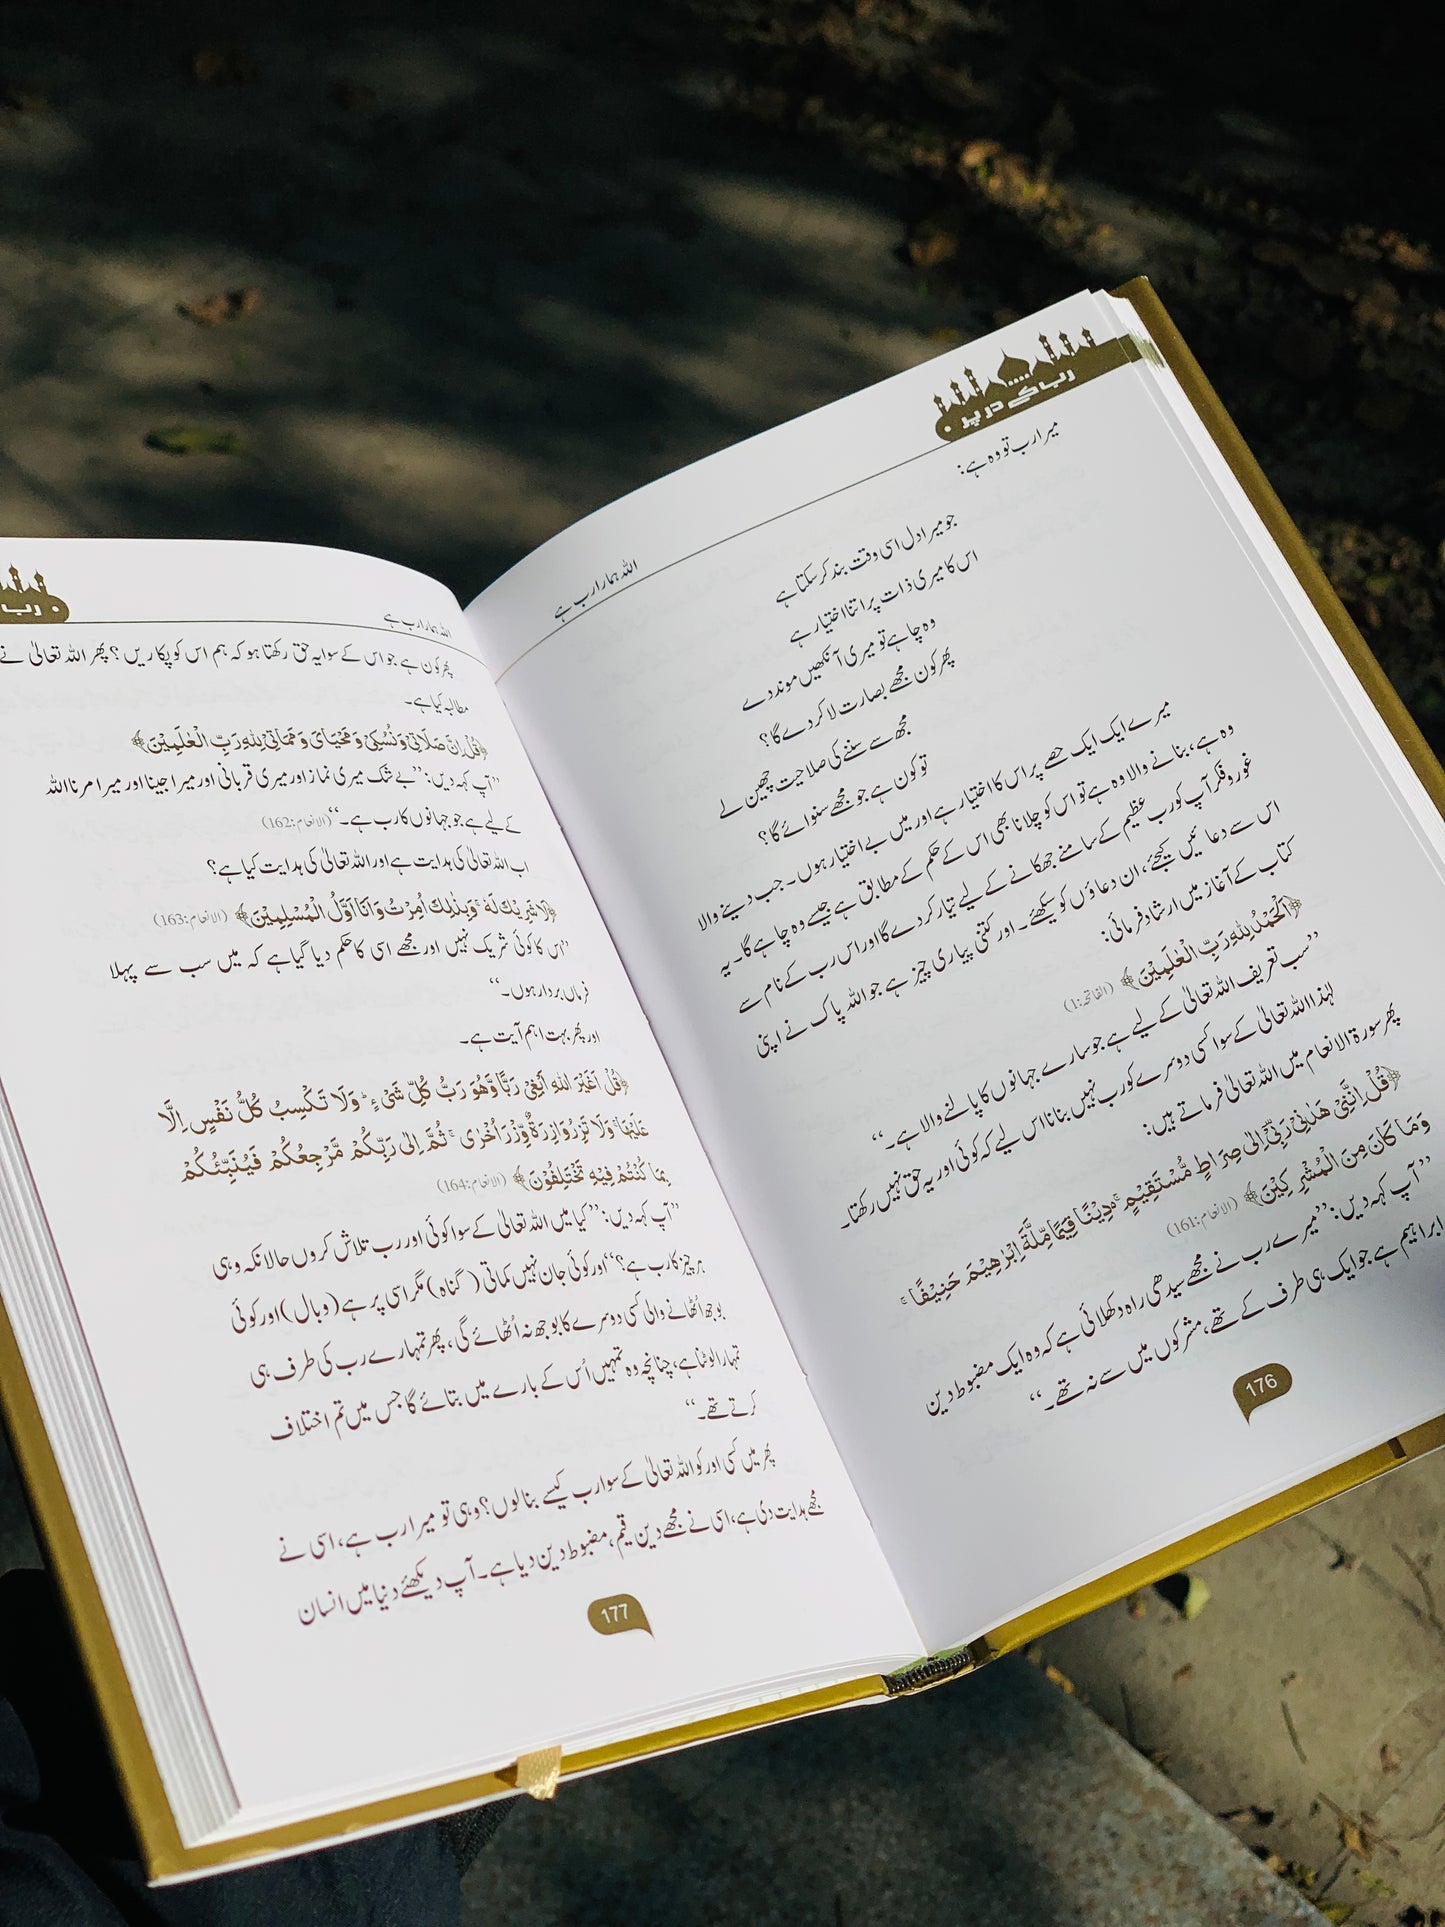 رب کے در پر
اللہ ہمارا رب ہے
میرا رب تو وہ ہے:
جو میرا دل اسی وقت بند کر سکتا ہے
اس کا میری ذات پر اتنا اختیار ہے
وہ چاہے تو میری آنکھیں موند دے
پھر کون مجھے بصارت لا کر دے گا؟
مجھ سے سننے کی صلاحیت چھین لے
تو کون ہے جو مجھے سنوائے گا؟
میرے ایک ایک حصے پر اس کا اختیار ہے اور میں بے اختیار ہوں۔ جب دینے والا
وہ ہے، بنانے والا وہ ہے تو اس کو چلانا بھی اس کے حکم کے مطابق ہے جیسے وہ چاہے گا۔ یہ
غور و فکر آپ کو رب عظیم کے سامنے جھکانے کے لیے تیار کر دے گا اور اس رب کے نام سے
اس سے دعائیں کیجئے، ان دعاؤں کو سیکھئے۔ اور کتنی پیاری چیز ہے جو اللہ پاک نے اپنی
کتاب کے آغاز میں ارشاد فرمائی:
﴿اَلْحَمْدُ لِلّٰهِ رَبِّ الْعٰلَمِيْنَ﴾ (الفاتحہ:1)
’’سب تعریف اللہ تعالیٰ کے لیے ہے جو سارے جہانوں کا پالنے والا ہے۔‘‘
لہٰذا اللہ تعالیٰ کے سوا کسی دوسرے کو رب نہیں بنانا اس لیے کہ کوئی اور یہ حق نہیں رکھتا۔
پھر سورۃ الانعام میں اللہ تعالیٰ فرماتے ہیں:
﴿قُلْ اِنَّنِيْ هَدٰىنِيْ رَبِّيْٓ اِلٰى صِرَاطٍ مُّسْتَقِيْمٍ ۚ دِيْنًا قِيَمًا مِّلَّةَ اِبْرٰهِيْمَ حَنِيْفًا ۚ
وَمَا كَانَ مِنَ الْمُشْرِكِيْنَ﴾ (الانعام:161)
’’آپ کہہ دیں: ’’میرے رب نے مجھے سیدھی راہ دکھلائی ہے کہ وہ ایک مضبوط دین
ابراہیم ہے جو ایک ہی طرف کے تھے، مشرکوں میں سے نہ تھے۔‘‘
176
رب
اللہ ہمارا رب ہے
پھر کون ہے جو اس کے سوا یہ حق رکھتا ہو کہ ہم اس کو پکاریں؟ پھر اللہ تعالیٰ نے
مطالبہ کیا ہے۔
﴿قُلْ اِنَّ صَلَاتِيْ وَنُسُكِيْ وَمَحْيَايَ وَمَمَاتِيْ لِلّٰهِ رَبِّ الْعٰلَمِيْنَ﴾
’’آپ کہہ دیں: ’’بے شک میری نماز اور میری قربانی اور میرا جینا اور میرا مرنا اللہ
کے لیے ہے جو جہانوں کا رب ہے۔‘‘ (الانعام:162)
اب اللہ تعالیٰ کی ہدایت ہے اور اللہ تعالیٰ کی ہدایت کیا ہے؟
﴿لَا شَرِيْكَ لَهٗ ۚ وَبِذٰلِكَ اُمِرْتُ وَاَنَا اَوَّلُ الْمُسْلِمِيْنَ﴾ (الانعام:163)
’’اس کا کوئی شریک نہیں اور مجھے اسی کا حکم دیا گیا ہے کہ میں سب سے پہلا
فرماں بردار ہوں۔‘‘
اور پھر بہت اہم آیت ہے۔
﴿قُلْ اَغَيْرَ اللّٰهِ اَبْغِيْ رَبًّا وَّهُوَ رَبُّ كُلِّ شَيْءٍ ۭ وَلَا تَكْسِبُ كُلُّ نَفْسٍ اِلَّا
عَلَيْهَا ۚ وَلَا تَزِرُ وَازِرَةٌ وِّزْرَ اُخْرٰى ۚ ثُمَّ اِلٰى رَبِّكُمْ مَّرْجِعُكُمْ فَيُنَبِّئُكُمْ
بِمَا كُنْتُمْ فِيْهِ تَخْتَلِفُوْنَ﴾ (الانعام:164)
’’آپ کہہ دیں: ’’کیا میں اللہ تعالیٰ کے سوا کوئی اور رب تلاش کروں حالانکہ وہی
ہر چیز کا رب ہے؟‘‘ اور کوئی جان نہیں کماتی (گناہ) مگر اسی پر ہے (وبال) اور کوئی
بوجھ اُٹھانے والی کسی دوسرے کا بوجھ نہ اُٹھائے گی، پھر تمہارے رب کی طرف ہی
تمہارا لوٹنا ہے، چنانچہ وہ تمہیں اُس کے بارے میں بتائے گا جس میں تم اختلاف
کرتے تھے۔‘‘
پھر میں کسی اور کو اللہ تعالیٰ کے سوا رب کیسے بنا لوں؟ وہی تو میرا رب ہے، اسی نے
مجھے ہدایت دی ہے، اسی نے مجھے دین قیم، مضبوط دین دیا ہے۔ آپ دیکھئے دنیا میں انسان
177